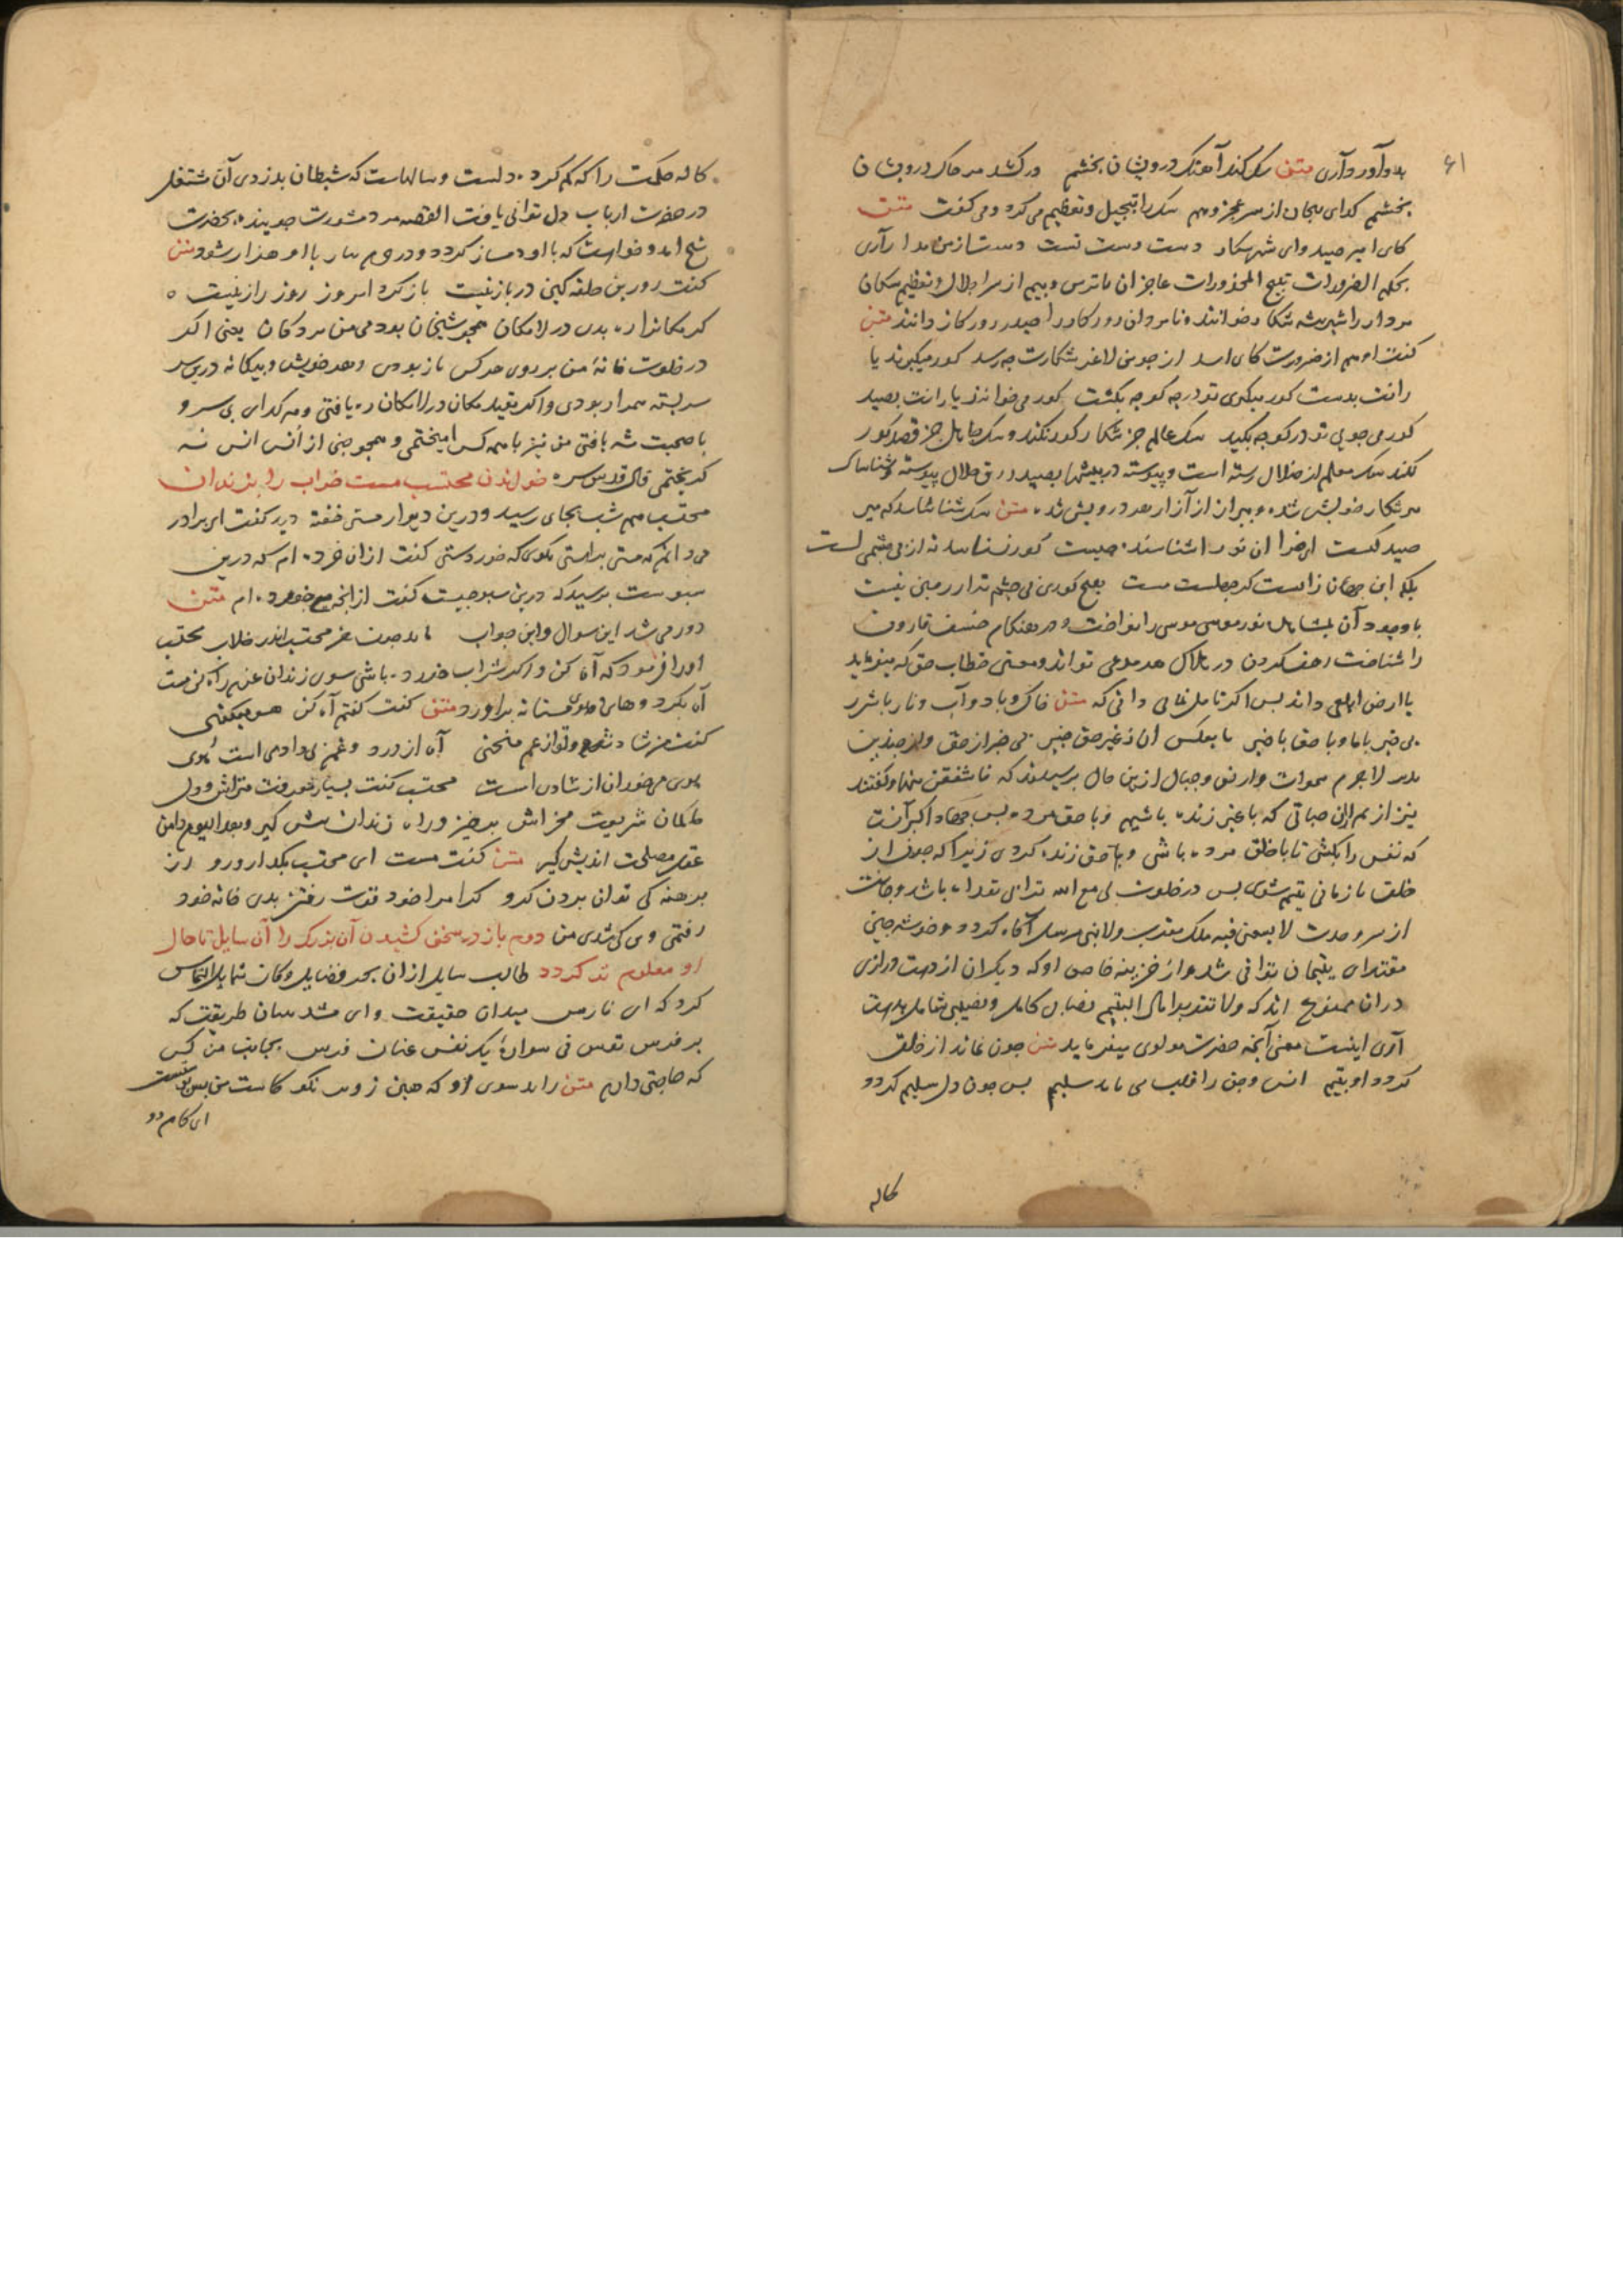 ۶۱
بدو آورد آری متن سگ کند آهنگ درویشان بخشم در کشد مه خاک درویشان
بخشم کدای بیجان از سر عجز و بیم سک را تبجیل و تعظیم می کرد و می کفت متن
کای امیر صید وای شیر شکار دست دست تست دست از من بدار آری
بحکم الضرورات تبیح المحذورات عاجزان با ترس و بیم از سر اجلال و تعظیم سکان
مردار را شیر بیشه شکار خوانند و نامردان روزکار را صیدر روزکار دانند متن
کفت او هم از ضرورت کای اسد از چو من لاغر شکارت چه رسد کور میکیرند یا
رانت بدست کور میکیری تو در چه کوچه بکشت کور می خوانند یارانت بصید
کور می جویی تو در کوچه بکید سک عالم جز شکار کور نکند و سک جاهل جز قصد کور
نکند سک معلم از ضلال رسته است و پیوسته در بیشها بصید رزق حلال پیوسته شناسای
میر شکار خویش شده و بیزار از آزار هر درویش شده متن سک شناسا شد که میر
صید کیست ای خدا آن نور اشناسنده چیست کور نشناسد نه از بی چشمی است
بلکه این زانست کز جهلست مست هیچ کوری بی چشم تر از زمین نیست
با وجود آن نور موسی موسی را نواخت و در هنکام خسف قارون
را شناخت رجف کردن در هلاک هر مدعی تواند و معنی خطاب حق که میفرماید
یا ارض ابلعی داند پس اکر تامل نمایی دانی که متن خاک و باد و آب و نار با شرر
بی خبر با ما و با حق با خبر ما بعکس آن ز غیر حق خبیر بی خبر از حق و از چندین
نذیر لاجرم سموات و ارض و جبال ازین حال برسیدند که فاشفقن منها و کفتند
بیزاریم ازین حیاتی که با غیر زنده باشیم و با حق مرده پس جهاد اکبر آنست
که نفس را بکشی تا با خلق مرده باشی و با حق زنده کردی زیرا که چون از
خلق باز مانی یتیم شوی پس در خلوت لی مع الله توانی
از سر وحدت لا یسعنی فیه ملک مقرب و لا نبی مرسل آکاه کردد و خوشه چین
مقتدای یتیمان توانی شد و از خزینه خاص او که دیکران از دست درازی
در آن ممنوع اند که و لا تقربوا مال الیتیم نصاب کامل و نصیبی شامل بدست
آری اینست معنی آنچه حضرت مولوی میفرماید متن چون نماند از خلق
کردد او یتیم انس حق را قلب می باید سلیم پس چون دل سلیم کردد
کاله
کاله حکمت را که کم کرده دلست و سالهاست که شیطان بدزدی آن مشتغل
در حضرت ارباب دل توانی یافت القصه مرد مشورت جوینده بحضرت
شیخ آمد و خواست که با او دمساز کردد و در حرم با او همراز شود متن
کفت رو زین حلقه کین در باز نیست باز کرد امروز روز راز نیست
کر مکانرا ره بدی در لامکان همچو شیخان بودمی من بر دکان یعنی اکر
در خلوت خانه من بر روی هر کس باز بودی و هر خویش و بیکانه درین
سر بسته همراز بودی و اکر تقید مکان در لامکان ره یافتی و هر کدای بی سر و
پا صحبت شه یافتی من نیز با همه کس آمیختمی و همچو جنی از انس انس نه
کریختمی قال قدس سره خواندن محتسب مست خراب را بزندان
محتسب نیم شب بجای رسید و در بن دیوار مستی خفته دید کفت ای برادر
می دانم که مستی براستی بکوی که خوردستی کفت ازان خورده ام که درین
سبوست پرسید که درین سبو چیست کفت از آنچه من خورده ام متن
دور می شد این سوال و این جواب ماند چون خر محتسب اندر خلاب محتسب
او را فرمود که آه کن و اکر شراب خورده باشی سوی زندان عزم راه کن مست
آه نکرد و های هوی مستانه براورد متن کفت کفتم آه کن هو میکنی
کفت من شاد و تو از غم منحنی آه از درد و غم و بیدادی است هوی
هوی می خوران از شادی است محتسب کفت بسیار معرفت متراش و دل
حاکمان شریعت مخراش بر خیز و راه زندان پیش کیر و بعد الیوم دامن
عقل مصلحت اندیش کیر متن کفت مست ای محتسب بکذار و رو از
برهنه کی توان بردن کرو کر مرا خود قوت رفتن بدی خانه خود
رفتمی وی کی شدی من دوم باز در سخن کشیدن آن بزرک را آن سایل تا حال
او معلوم تر کردد طالب سایل ازان بحر فضایل و کان شمایل التماس
کرد که ای فارس میدان حقیقت وای طریقت که
بر فرس یک نفس عنان فرس بجانب من کن
که حاجتی دارم متن راند سوی او که هین زوتر بکو کاسب من بس توسنست
ای کام دو